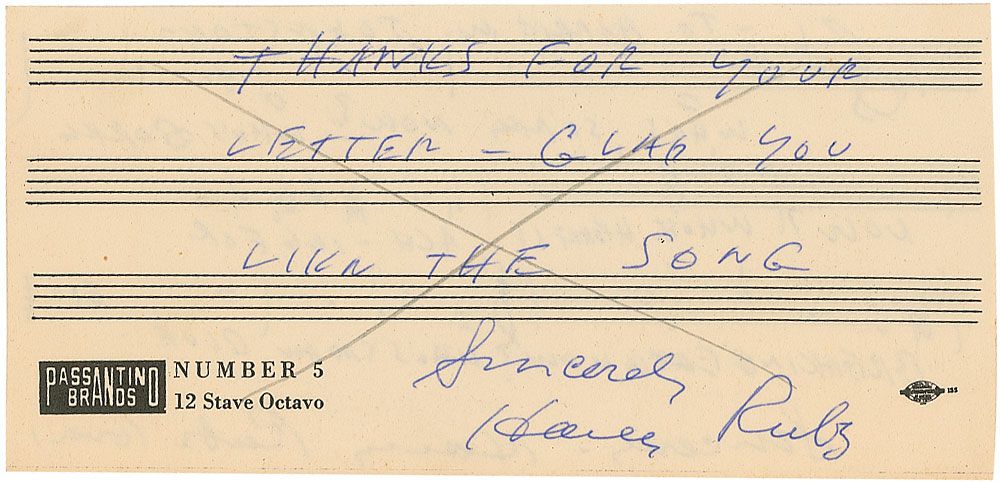 THANKS FOR YOUR
LETTER – GLAD YOU
LIKE THE SONG
Sincerely
Harry Ruby
PASSANTINO
BRANDS
NUMBER 5
12 Stave Octavo